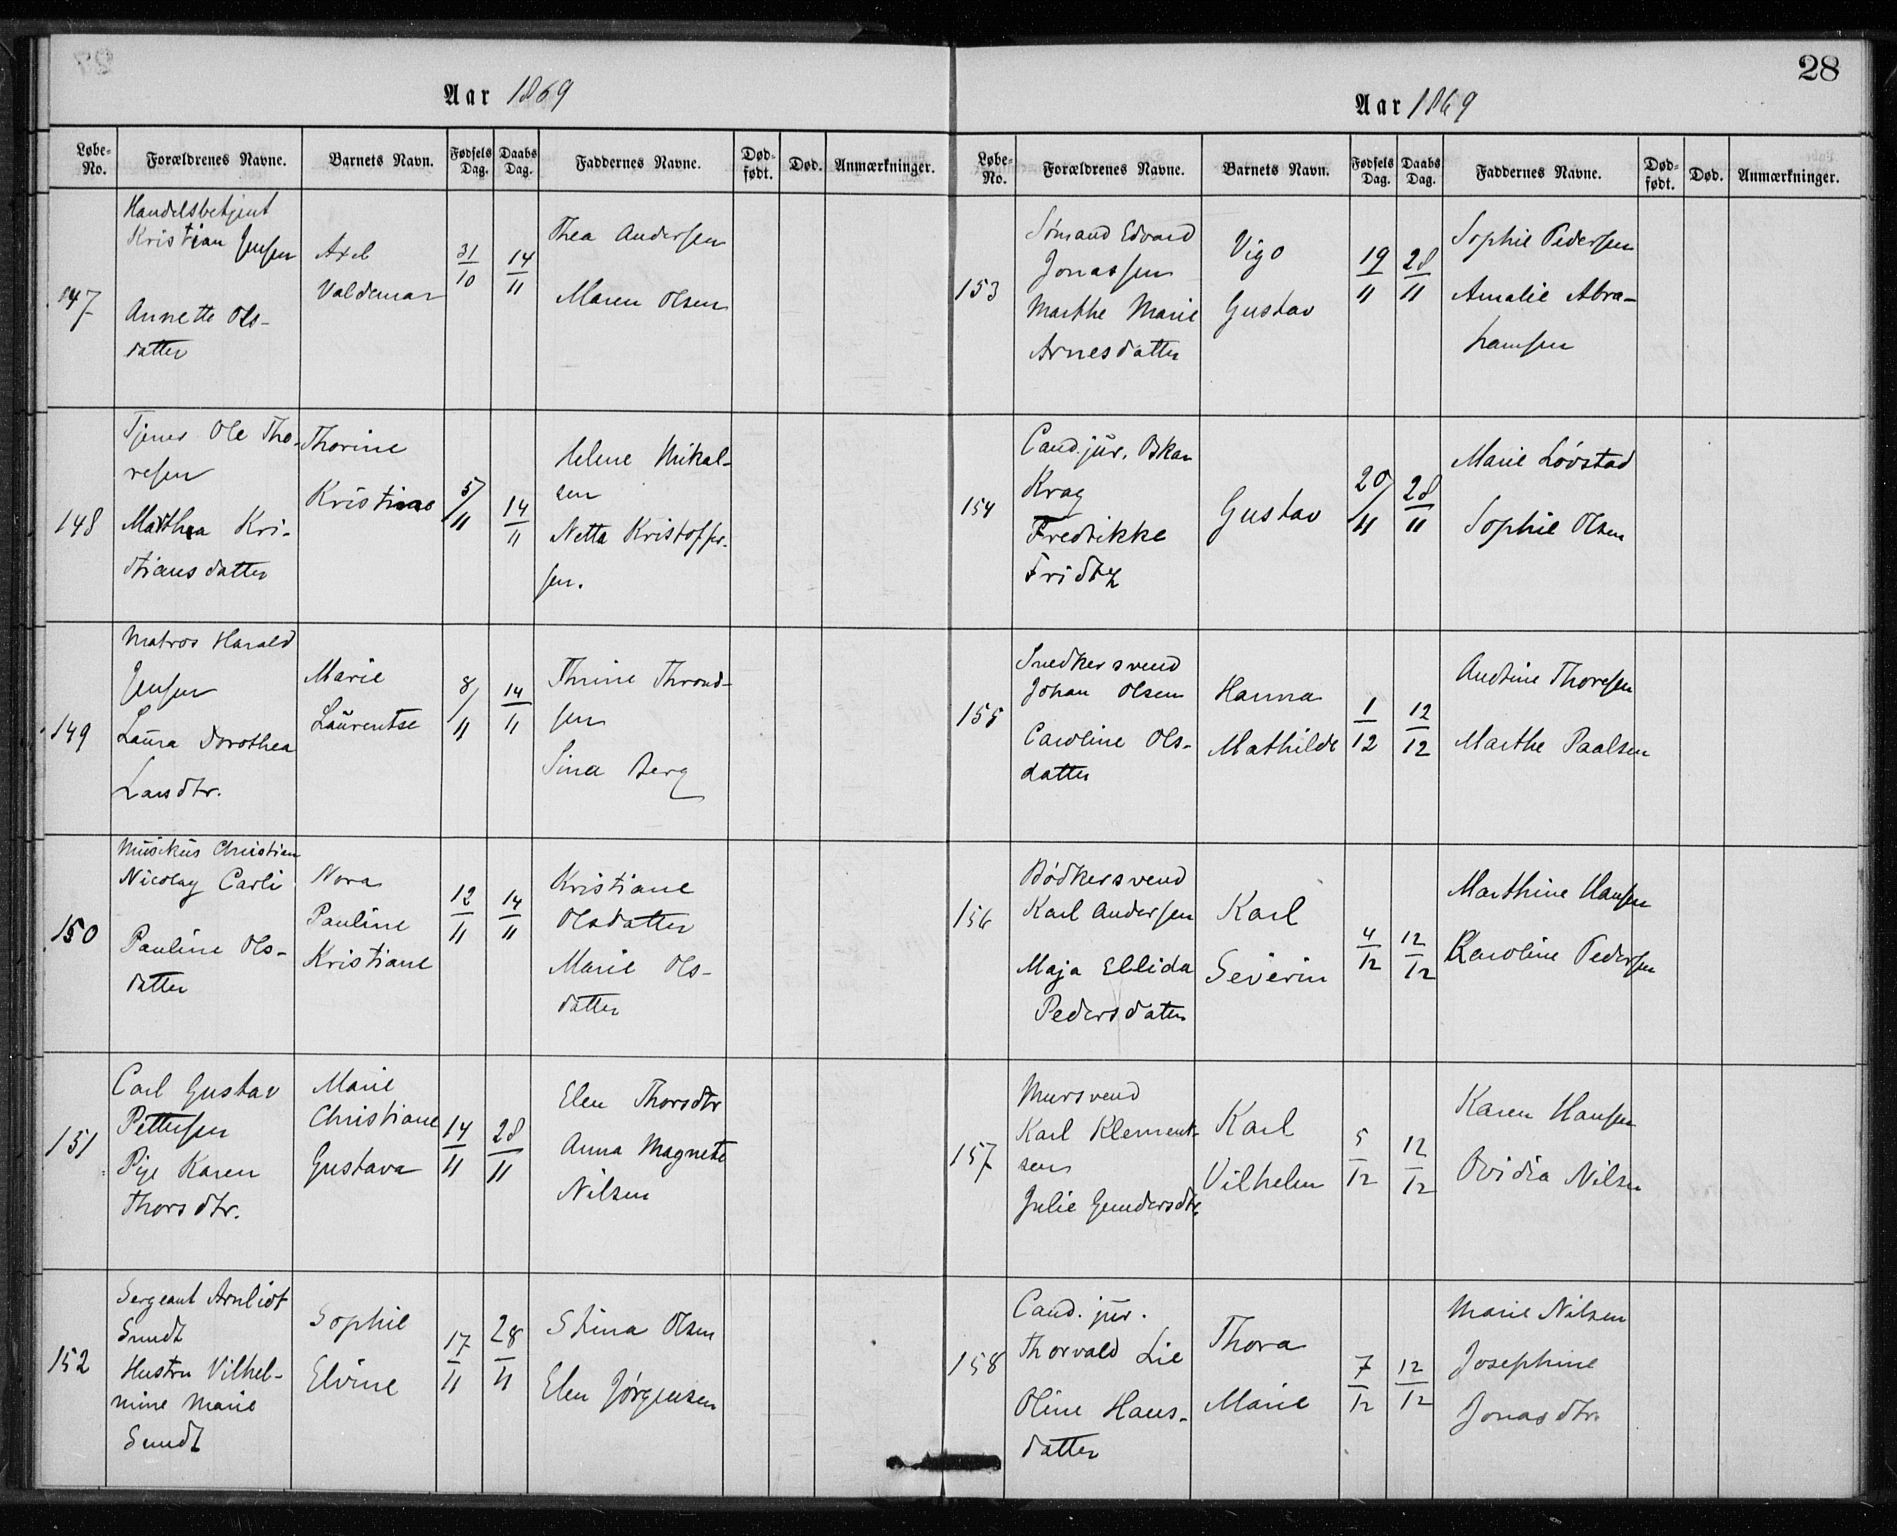 28
Aar 1869
Løbe-No. Forældrenes Navne. Barnets Navn. Fødsels Dag. Daabs Dag. Faddernes Navne. Død-født. Død. Anmærkninger.
147
Handelsbetjent
Kristian Jensen
Annette Ols-
datter
Axel
Valdemar
31/10
14/11
Thea Andersen
Maren Olsen
148
Tjener Ole Tho-
resen
Marthea Kri-
stiansdatter
Thorine
Kristine
5/11
14/11
Helene Mikal-
sen
Netta Kristoffer-
sen.
149
Matros Harald
Jensen
Laura Dorothea
Larsdtr.
Marie
Laurentse
8/11
14/11
Thrine Thrond-
sen
Sina Berg
150
Musikus Christian
Nicolay Carli
Pauline Ols-
datter
Nora
Pauline
Kristiane
12/11
14/11
Kristiane
Olsdatter
Marie Ols-
datter
151
Carl Gustav
Pettersen
Pige Karen
Thorsdtr.
Marie
Christiane
Gustava
14/11
28/11
Elen Thorsdtr
Anna Magnete
Nilsen
152
Sergeant Arnliot
Sundt
Hustru Vilhel-
mine Marie
Sundt
Sophie
Elvine
17/11
28/11
Stina Olsen
Elen Jørgensen
Aar 1869
Løbe-No. Forældrenes Navne. Barnets Navn. Fødsels Dag. Daabs Dag. Faddernes Navne. Død-født. Død. Anmærkninger.
153
Sømand Edvard
Jonassen
Marthe Marie
Arnesdatter
Vigo
Gustav
19/11
28/11
Sophie Pedersen
Amalie Abra-
hamsen
154
Cand. jur. Oskar
Krag
Fredrikke
Gustav
20/11
28/11
Marie Løvstad
Sophie Olsen
155
Snedkersvend
Johan Olsen
Caroline Ols-
datter
Hanna
Mathilde
1/12
12/12
Andrine Thoresen
Marthe Paalsen
156
Bødkersvend
Karl Andersen
Maja Ellida
Pedersdatter
Karl
Severin
4/12
12/12
Marthine Hansen
Karoline Pedersen
157
Mursvend
Karl Klement-
sen
Julie Gundersdtr.
Karl
Vilhelm
5/12
12/12
Karen Hansen
Ovidia Nilsen
158
Cand. jur.
Thorvald Lie
Oline Hans-
datter
Thora
Marie
7/12
12/12
Marie Nilsen
Josephine
Jonasdtr.